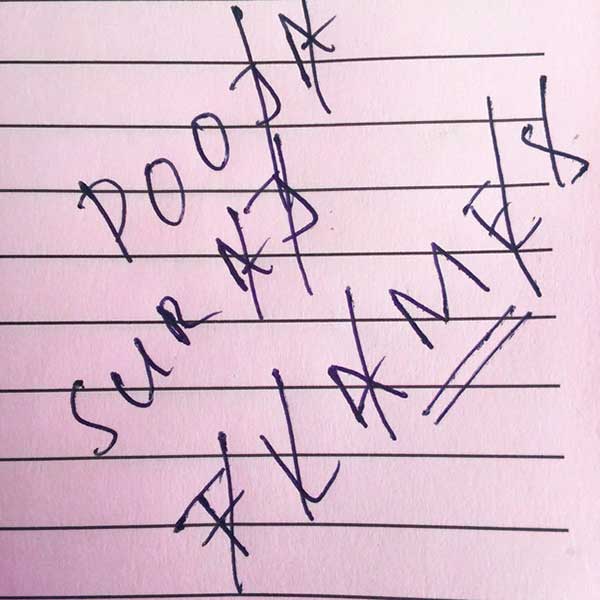 POOJA
SURAJ
FLAMES